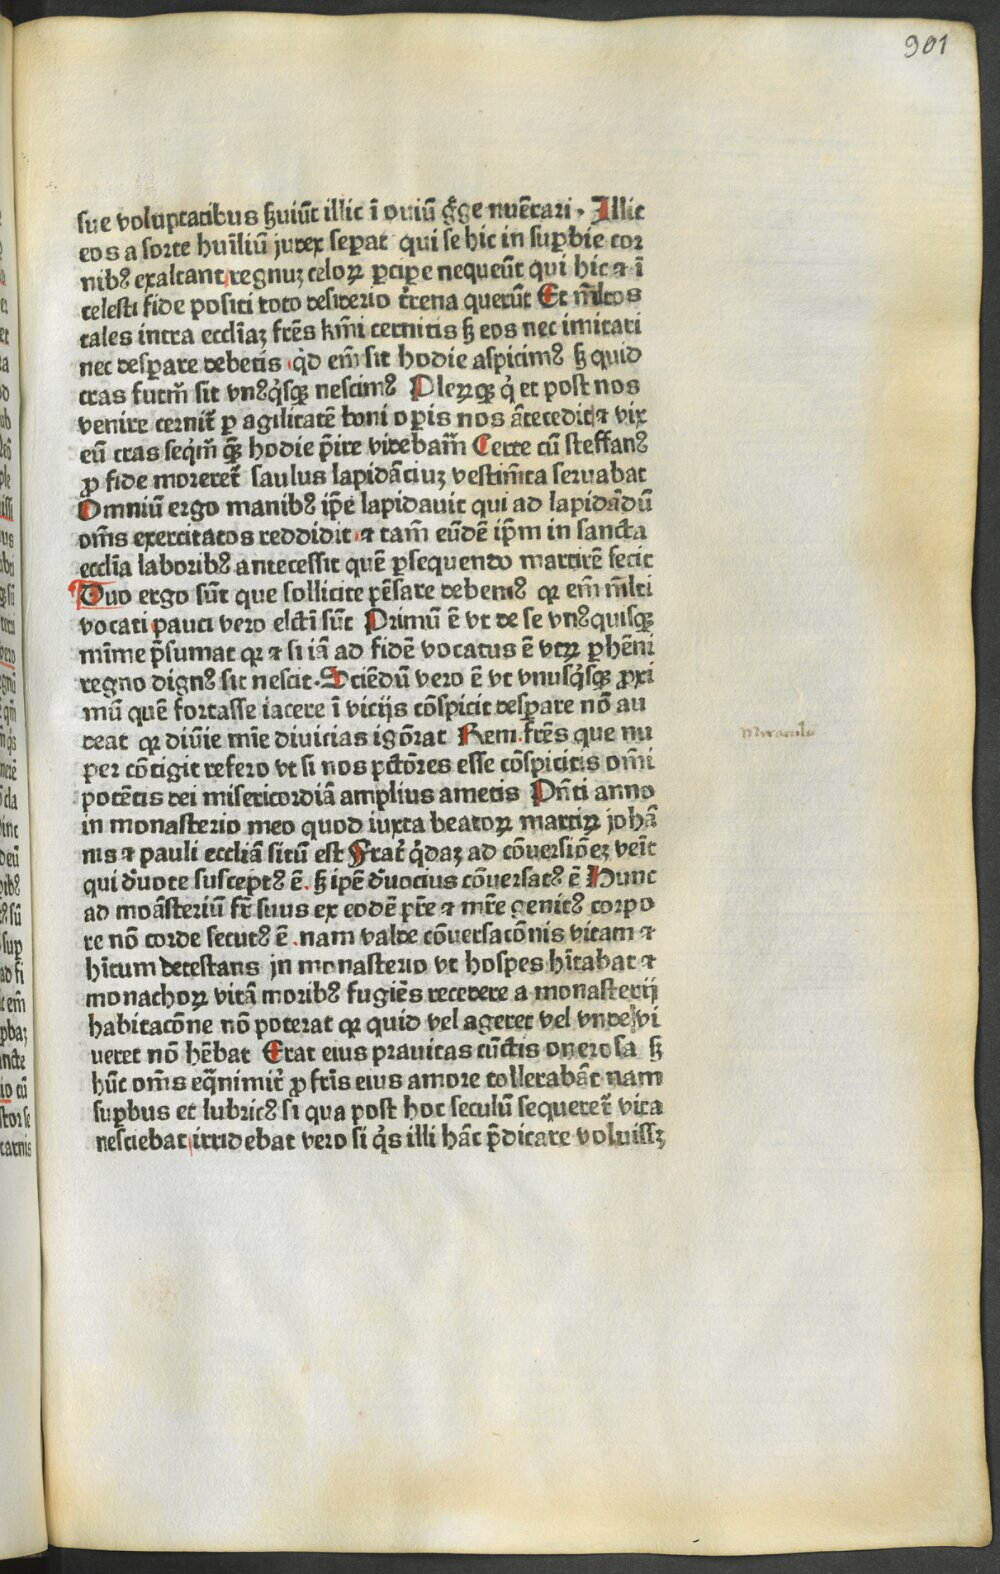 901
sue voluptatibus ẜuiūt illic ī ouiū g̃ge nuēcari · Illic
eos a sorte huīliū judex sep̱at qui se hic in sup̱bie cor
nibꝰ exaltant regnuꝫ celoꝝ p̱cip̱e nequeūt qui hic ⁊ ī
celesti fide positi toto desiderio t̄rena querūt Et ml̄tos
tales intra eccl̄iaꝫ fr̄es km̄i cernitis ẜ eos nec imitari
nec desp̱are debetis qd̓ em̄ sit hodie aspicimꝰ ẜ quid
cras futur̄ sit vnꝰqͥsqꝫ nescimꝰ Pleꝝqꝫ qͥ et post nos
venire cernit̄ p̱ agilitatē boni op̱is nos ātecedit ⁊ vix
eū cras seqͥm̄ quē hodie p̄ire videbam̄ Certe cū steffanꝰ
ꝓ fide moreret̄ saulus lapidāciuꝫ vestim̄ta seruabat
Omniū ergo manibꝰ ip̄e lapidauit qui ad lapidādū
om̄s exercitatos reddidit ⁊ tam̄ eūdē ip̄m in sancta
eccl̄ia laboribꝰ antecessit quē p̱sequendo martirē fecit
Duo ergo sūt que sollicite pēsare debemꝰ qꝛ em̄ ml̄ti
vocati pauci vero elcti sūt Primū ē vt de se vnꝰquisqꝫ
mīme p̄sumat qꝛ ⁊ si iā ad fidē vocatus ē vtꝝ p̱hēni
regno dignꝰ sit nescit · Sciēdū vero ē vt vnusqͥsqꝫ ꝓxi
mū quē fortasse iacere ī vicijs cōspicit desp̱are nō au
deat qꝛ diuīe mīe diuicias igōrat Rem fr̄es que nu
per cōtigit refero vt si nos p̱ctōres esse cōspicitis om̄i
potētis dei misericordiā amplius ametis Pn̄ti anno
in monasterio meo quod iuxta beatoꝝ martiꝝ johā
nis ⁊ pauli eccliā sitū est Frat̄ qͥdaꝫ ad cōuersiōeꝫ veīt
qui d̓uote susceptꝰ ē . ẜ ip̄e d̓uocius cōuersatꝰ ē Hunc
ad moāsteriū fr̄ suus ex eodē pr̄e ⁊ mr̄e genitꝰ corpo
re nō corde secutꝰ ē . nam valde cōuersacōnis vitam ⁊
hītum detestans jn monasterio vt hospes hītabat ⁊
monachoꝝ vitā moribꝰ fugiēs recedere a monasterij
habitacōne nō poterat qꝛ quid vel ageret vel vnde vi
ueret nō hēbat Erat eius prauitas cūctis onerosa ẜ
hūc om̄s eq̄nimit̄ ꝓ fr̄is eius amore tollerabāt nam
sup̱bus et lubricꝰ si qua post hoc seculū sequeret̄ vita
nesciebat irridebat vero si qͥs illi hāc p̄dicare voluissꝫ
Miracula